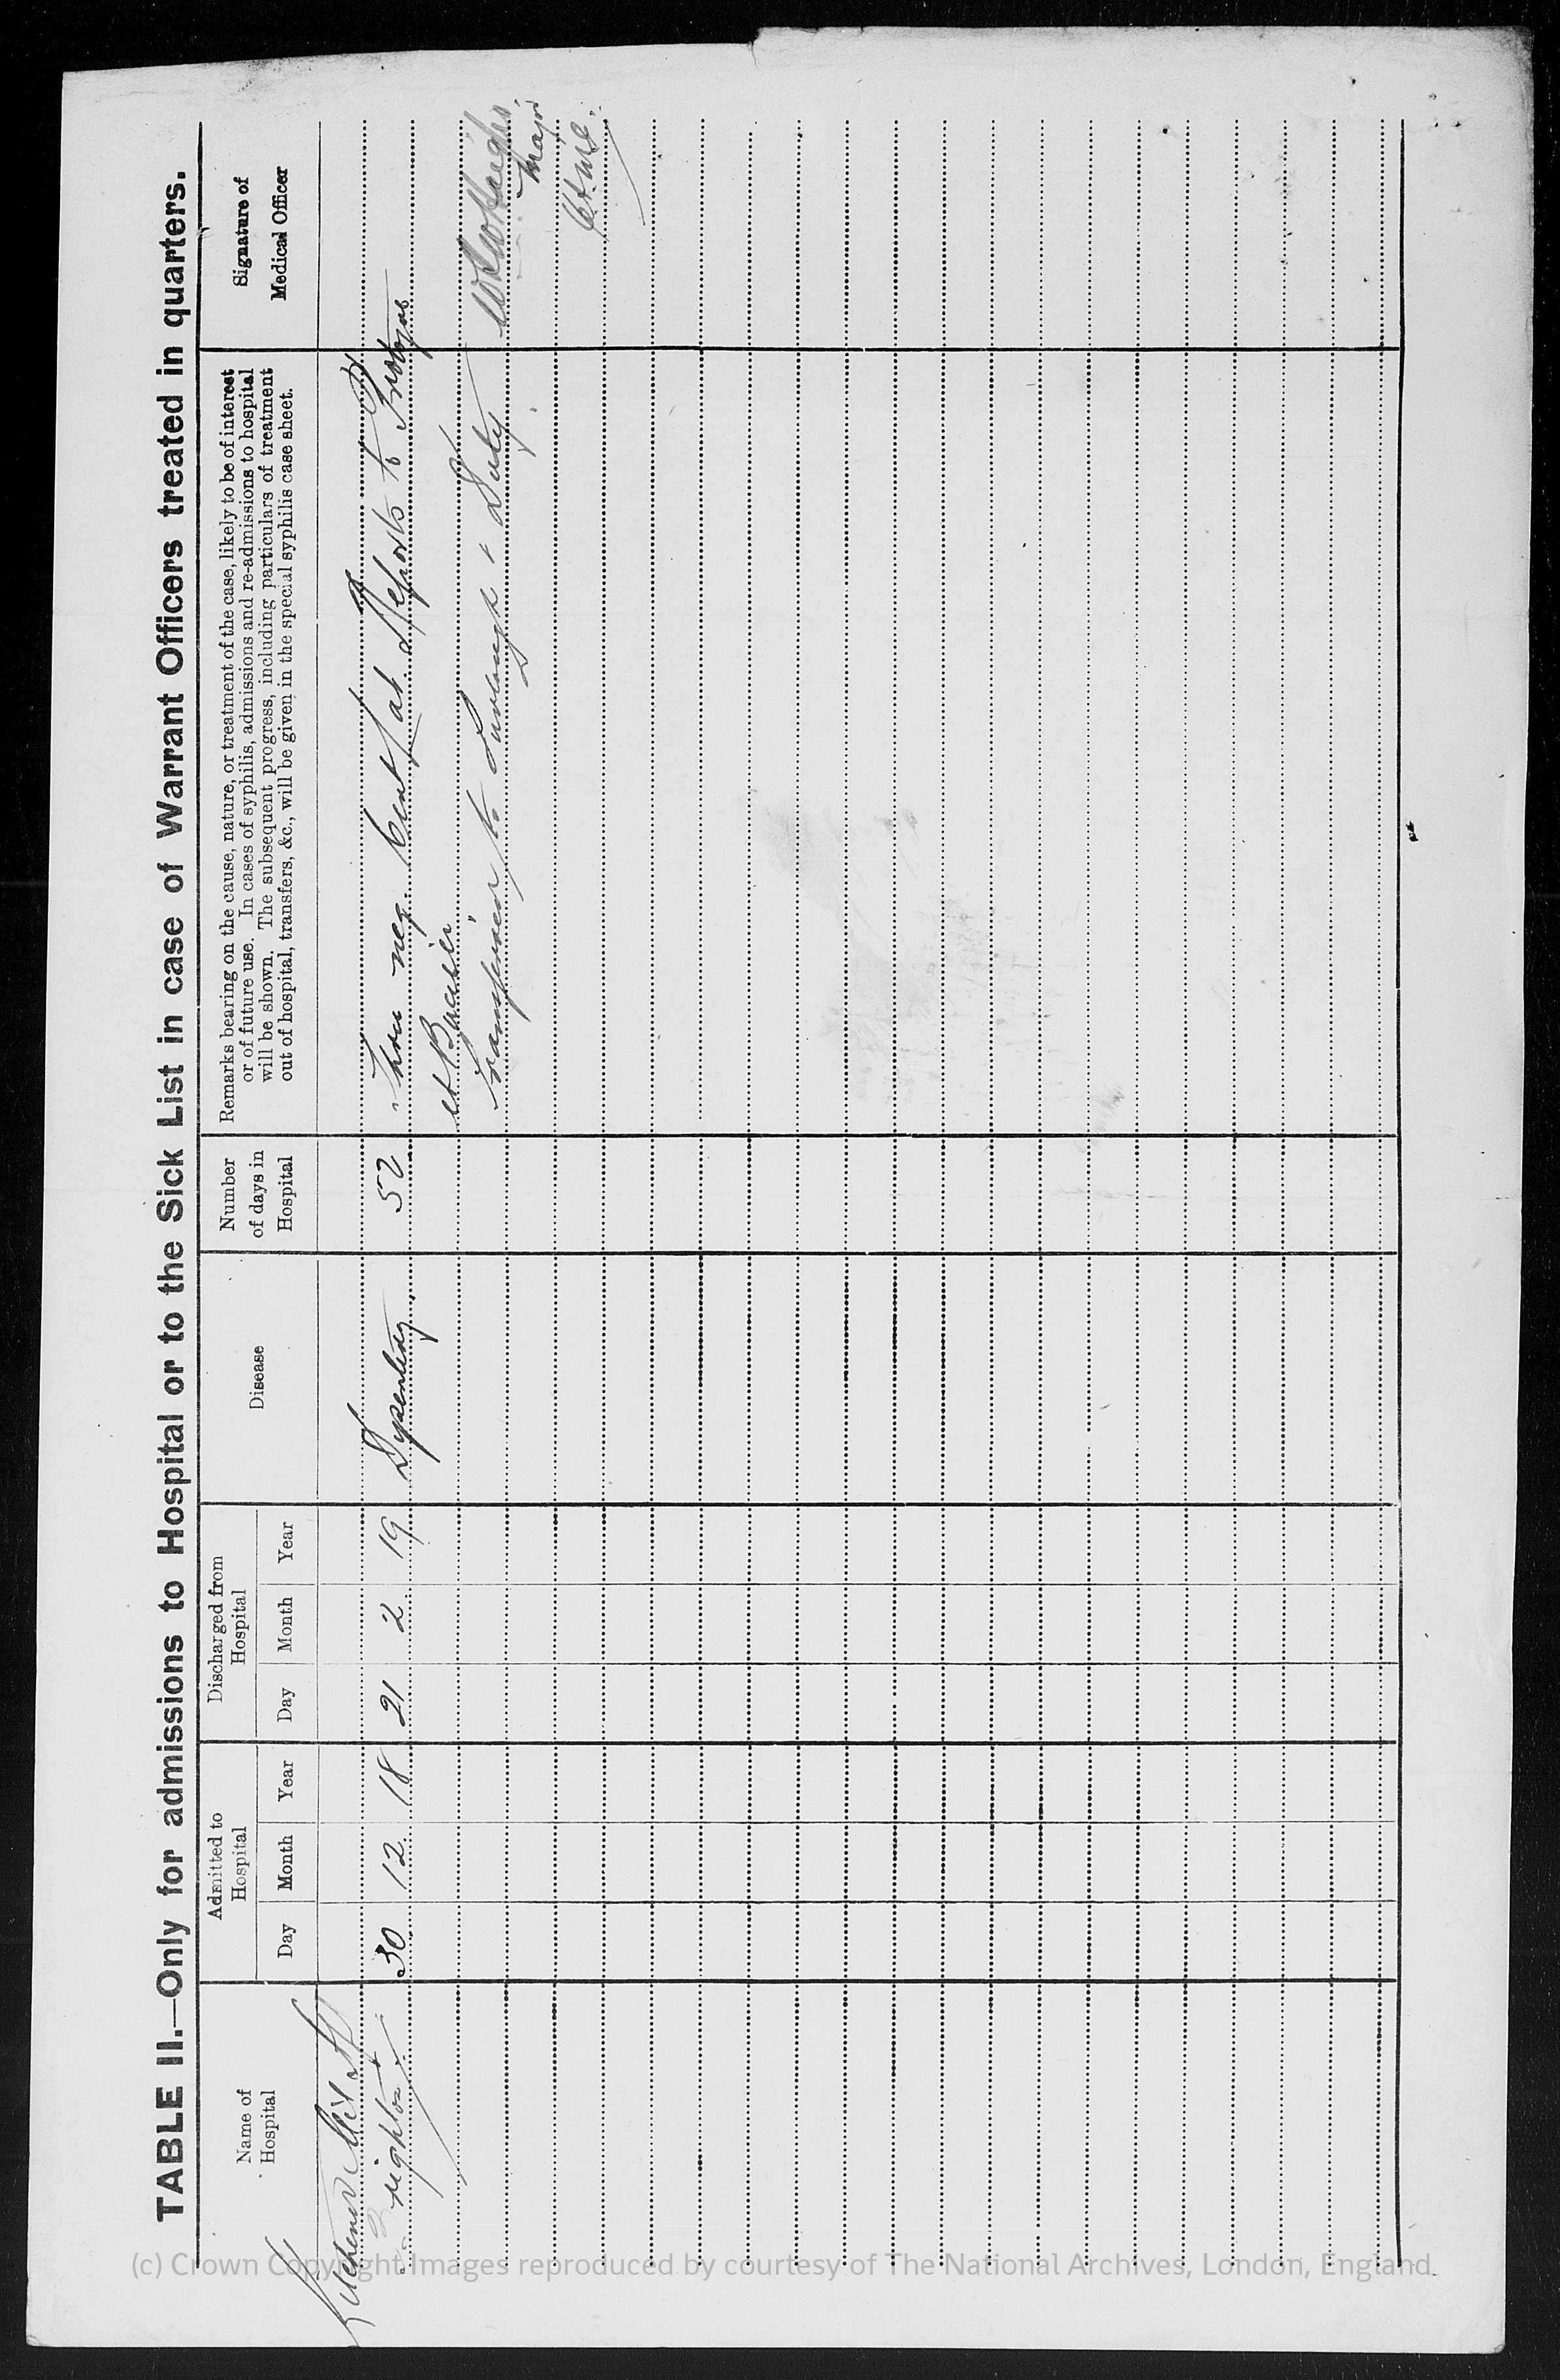 TABLE II.—Only for admissions to Hospital or to the Sick List in case of Warrant Officers treated in quarters.
Name of
Hospital
Admitted to
Hospital
Day
Month
Year
Discharged from
Hospital
Day
Month
Year
Disease
Number
of days in
Hospital
Remarks bearing on the cause, nature, or treatment of the case, likely to be of interest
or of future use. In cases of syphilis, admissions and re-admissions to hospital
will be shown. The subsequent progress, including particulars of treatment
out of hospital, transfers, &c., will be given in the special syphilis case sheet.
Signature of
Medical Officer
Kitchener Mil
30
12
18
21
2
19
Dysentery
52
Three neg. Reports to
et Bacilli.
Transferred to Furlough & Duty.
Major
(c) Crown Copyright Images reproduced by courtesy of The National Archives, London, England.